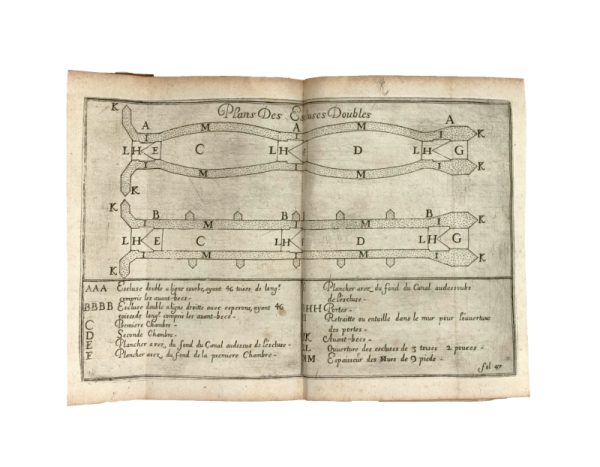 Plans Des Escluses Doubles
K A M A M I A K
I I
L H E C L H E D L H G
I M I M I K
K
K B M B M B I K
L H E C L H E D L H G
I M I M I K
K
AAA Escluse double a ligne courbe, ayant 46 toises de long.r
compris les avant-becs-
BBBB Escluse double a ligne droitte avec esperons, ayant 46
compris les avant-becs-
C Premiere Chambre-
D Seconde Chambre-
E Plancher avec du fond du Canal audessus de l'escluse-
F Plancher avec du fond de la premiere Chambre-
Plancher avec du fond du Canal audessoubs
de l'escluse-
HHH Portes-
I Retraitte ou entaille dans le mur pour l'ouverture
des portes-
K Avant-becs-
LL Ouverture des escluses de 3 toises 2 pouces-
MM Espaisseur des Murs de 9 pieds-
fol 47